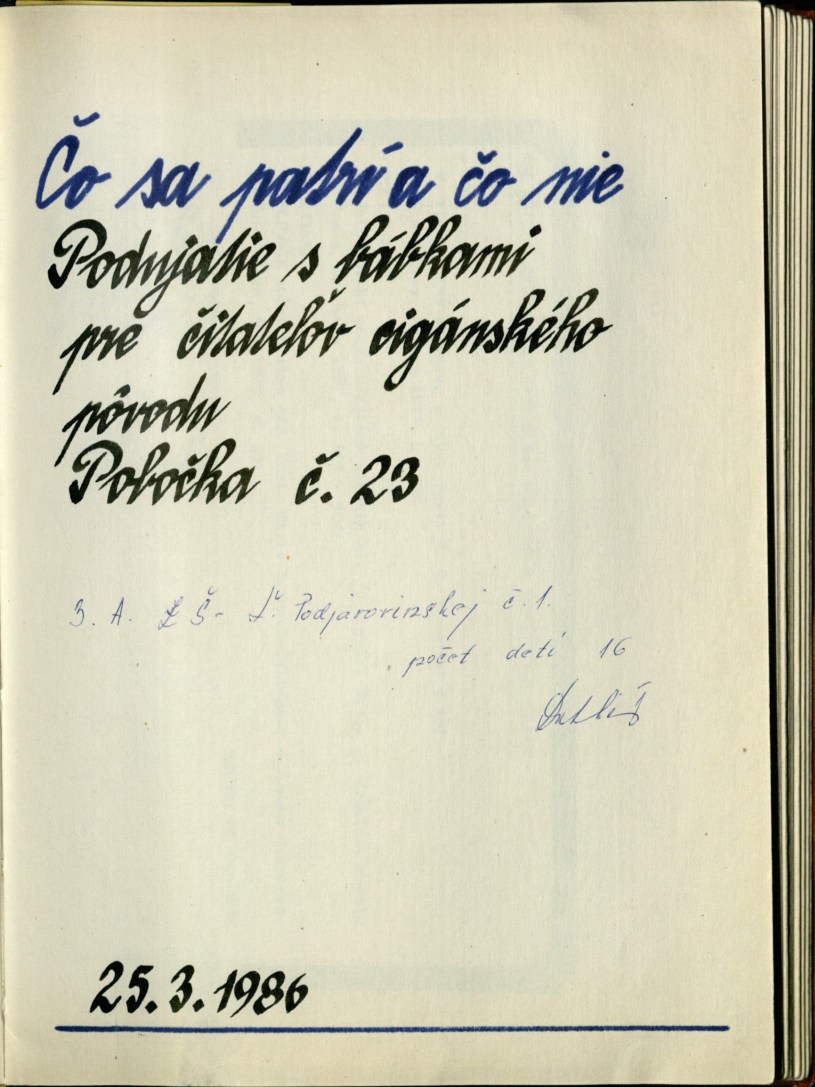 Čo sa patrí a čo nie
Podujatie s bábkami
pre čitateľov cigánského
pôvodu
Pobočka č. 23
3. A. ZŠ - Ľ. Podjavorinskej č. 1.
počet detí 16
25.3.1986